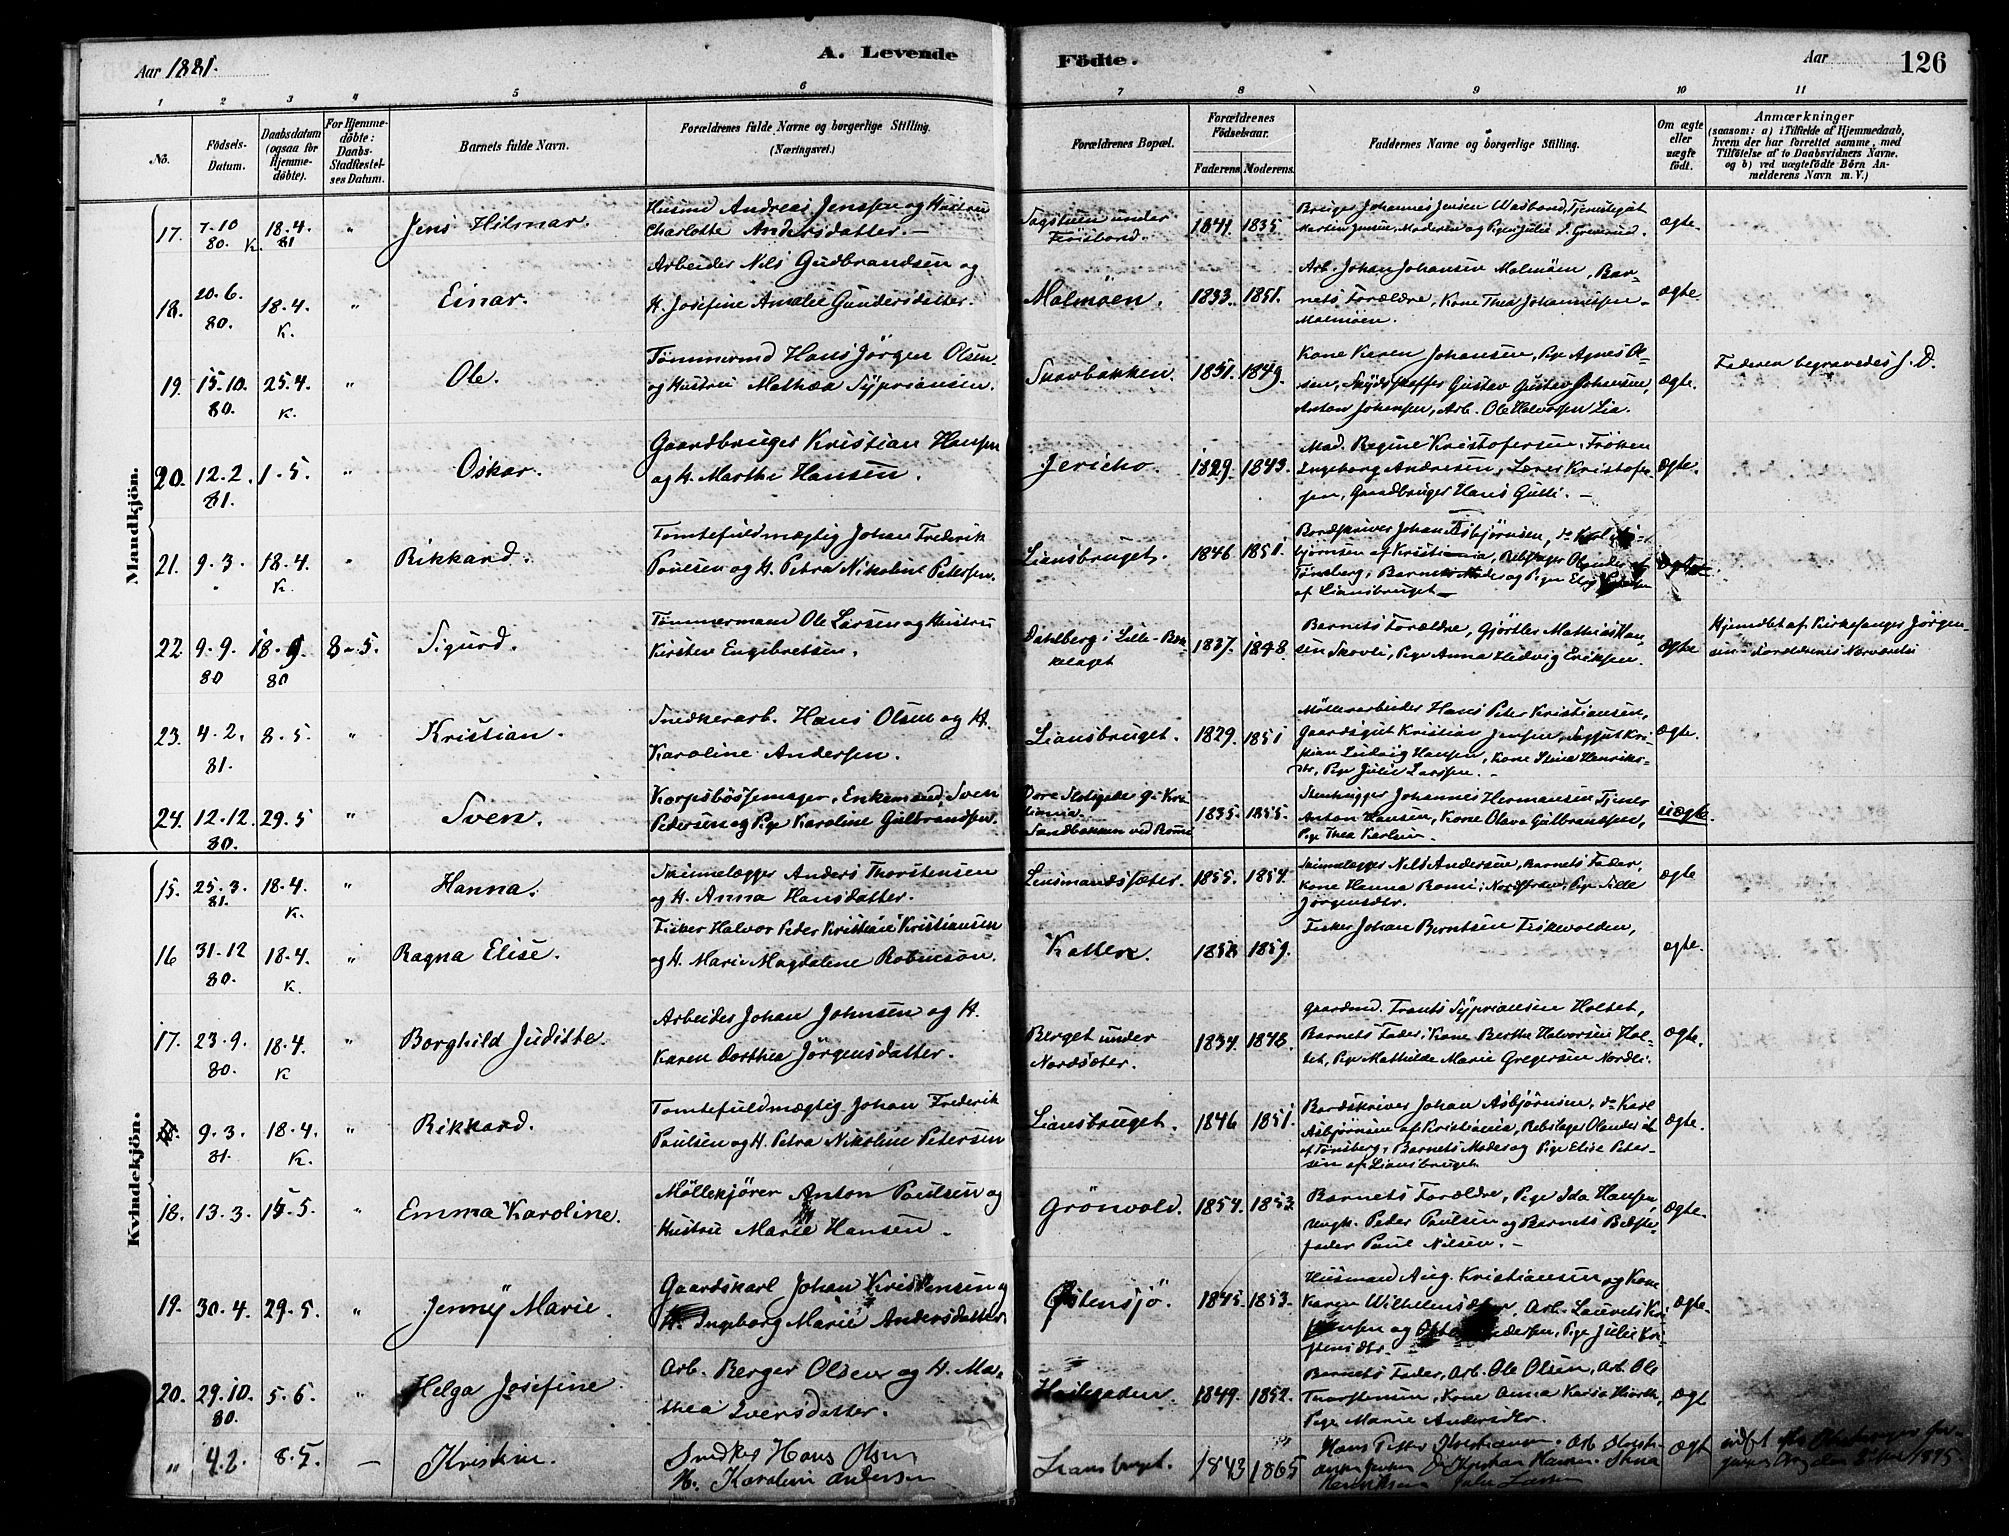 Aar 1881.
A. Levende
Födte.
Aar
126
1 2 3 4 5 6 7 8 9 10 11
No.
Födsels-
Datum.
Daabsdatum
(ogsaa for
Hjemme-
döbte).
For Hjemme-
döbte:
Daabs-
Stadfæstel-
ses Datum.
Barnets fulde Navn.
Forældrenes fulde Navne og borgerlige Stilling.
(Næringsvei.)
Forældrenes Bopæl.
Forældrenes
Födselsaar.
Faderens. Moderens.
Faddernes Navne og borgerlige Stilling.
Om ægte
eller
uægte
födt.
Anmærkninger
(saasom: a) i Tilfælde af Hjemmedaab,
hvem der har forrettet samme, med
Tilföielse af to Daabsvidners Navne,
og b) ved uægtefödte Börn An-
melderens Navn m. V.)
Mandkjön.
17. 7-10 80. K. 18.4. 81 " Jens Hilmar.
Husmd Andreas Jenssen og Hustru
Charlotte Andersdatter.
Sagstuen under
1841 1835
Johannes Jensen
Martin Jensen, Moderen og Pige Julie
ægte.
18. 20.6. 80. 18.4. K. " Einar.
Arbeider Nils Gudbrandsen og
H. Josefine Amalie Gundersdatter.
Malmöen. 1833. 1851.
Arb. Johan Johansen Malmöen, Bar-
nets Forældre, Kone Thea Johannessen
Malmöen.
ægte.
19. 15.10. 80. 25.4. K. " Ole.
Tömmermd Hans Jörgen Olsen
og Hustru Mathea Sypriansen.
Skovbakken. 1851. 1849.
Kone Karen Johansen, Pige Agnes Ol-
sen, Skydsskaffer Gustav Gustav Johansen,
Anton Johansen, Arb. Ole Halvorsen Lia.
ægte.
Faderen begravedes s. D.
20. 12.2. 81. 1-5. " Oskar.
Gaardbruger Kristian Hansen
og H. Marthe Hansen.
Jericho. 1829. 1843.
Mad. Regine Kristofersen, Fröken
Ingeborg Andresen, Lærer Kristofer-
sen, Gaardbruger Hans Gulli.
ægte.
21. 9-3. 18.4. K. " Rikkard.
Tomtefuldmægtig Johan Frederik
Pouesen og H. Petra Nikoline Petersen.
Liansbruget. 1846 1851.
Bordskriver Johan Asbjörnsen, do Karl As-
björnsen af Kristiania, Rebslager Olander
Tönsberg, Barnets Moder og Pige Elise
af Liansbruget
22. 9-9. 80 18.9. 80 8-5. Sigurd.
Tömmermand Ole Larsen og Hustru
Kirsten Engebretsen.
Dahlberg i Lille-Bæk-
kelaget
1837. 1848.
Barnets Forældre, Gjörtler Mathias Han-
sen Skovli, Pige Anna Hedvig Eriksen.
ægte
Hjemdöbt af Kirkesanger Jörgen-
sen Forældrenes Nærværelse
23. 4-2. 81. 8-5. " Kristian.
Snedkerarb. Hans Olsen og H.
Karoline Andersen.
Liansbruget. 1829. 1851
Möllerarbeider Hans Peter Kristiansen,
Gaardsgut Kristian Jensen, Kri-
stian Ludvig Hansen, Kone Stina Henriks-
dtr, Pige Julie Larssen.
ægte.
24. 12-12. 80. 29.5 " Sven.
Enkemand Sven
Pedersen og Pige Karoline Gulbrandsen.
1835. 1855.
Stenhugger Johannes Hermansen, Tjener
Anton Hansen, Kone Olava Gulbrandsen,
Pige Thea Karlsen.
uægte.
Kvindekjön.
15. 25-3. 81. 18-4. K. " Hanna.
Skinnelægger Anders Thorstensen
og H. Anna Hansdatter.
Linsmandssæter. 1855. 1854.
Skinnelægger Nils Andersen, Barnets Fader,
Kone Hanna Nordstrand, Pige
Jörgensdtr.
ægte
16 31-12 80. 18-4. K. " Ragna Elise.
Fisker Halvor Peder Kristiane Kristiansen
og H. Marie Magdalene Robinson.
Katten. 1858 1859.
Fisker Johan Berntsen Fiskevolden,
ægte.
17. 23-9. 80. 18.4. K " Borghild Juditte.
Arbeider Johan Johnsen og H.
Karen Dorthea Jörgensdatter.
Berget under
Nordsæter.
1834. 1848.
Gaardmd. Frants Syprianssen Holtet,
Barnets Fader, Kone Berthe Halvorsen Hol-
tet, Pige Mathilde Marie Gregersen Nordli.
ægte.
9-3. 81. 18-4. K. " Rikkard.
Tomtefuldmægtig Johan Frederik
Paulsen og H. Petra Nikoline Petersen
Liansbruget. 1846 1851.
Bordskriver Johan Asbjörnsen, do Karl
Asbjörnsen af Kristiania, Rebslager Olander
af Tönsberg, Barnets Moder og Pige Elise Peter-
sen af Liansbruget.
ægte.
18. 13-3. 15-5. " Emma Karoline.
Möllekjörer Anton Paulsen og
Hustru Marie Hansen.
Grönvold. 1854. 1853.
Barnets Forældre, Pige Ida Hansen,
Ungk. Peder Paulsen og Barnets Bedste-
fader Paul Nilsen.
ægte.
19. 30-4. 29-5. " Jenny Marie.
Gaardskarl Johan Kristensen og
H. Ingeborg Marie Andersdatter.
Östensjö. 1845. 1853.
Husmand Aug. Kristiansen og Kone
Karen Wilhelmsdtr. Arb. Laurets Kri-
stensen og Andersen, Pige Julie Kri-
stensdtr.
ægte.
20. 29.10. 80. 5-6. " Helga Josefine.
Arb. Berger Olsen og H. Ma-
thea Iversdatter.
1849. 1852.
Barnets Fader, Arb. Ole Olsen, Arb. Ole
Thorstensen, Kone Anna Karia
Pige Marie Andersdtr.
ægt
" 4.2. 8.5. Kristine.
Snedker Hans Olsen
H. Karoline Andersen
Liansbruget. 1843 1865
Hans Petter Kristiansen. Arb.
Kristian Hansen. Stina
Henriksen Julie Larsen
ægt